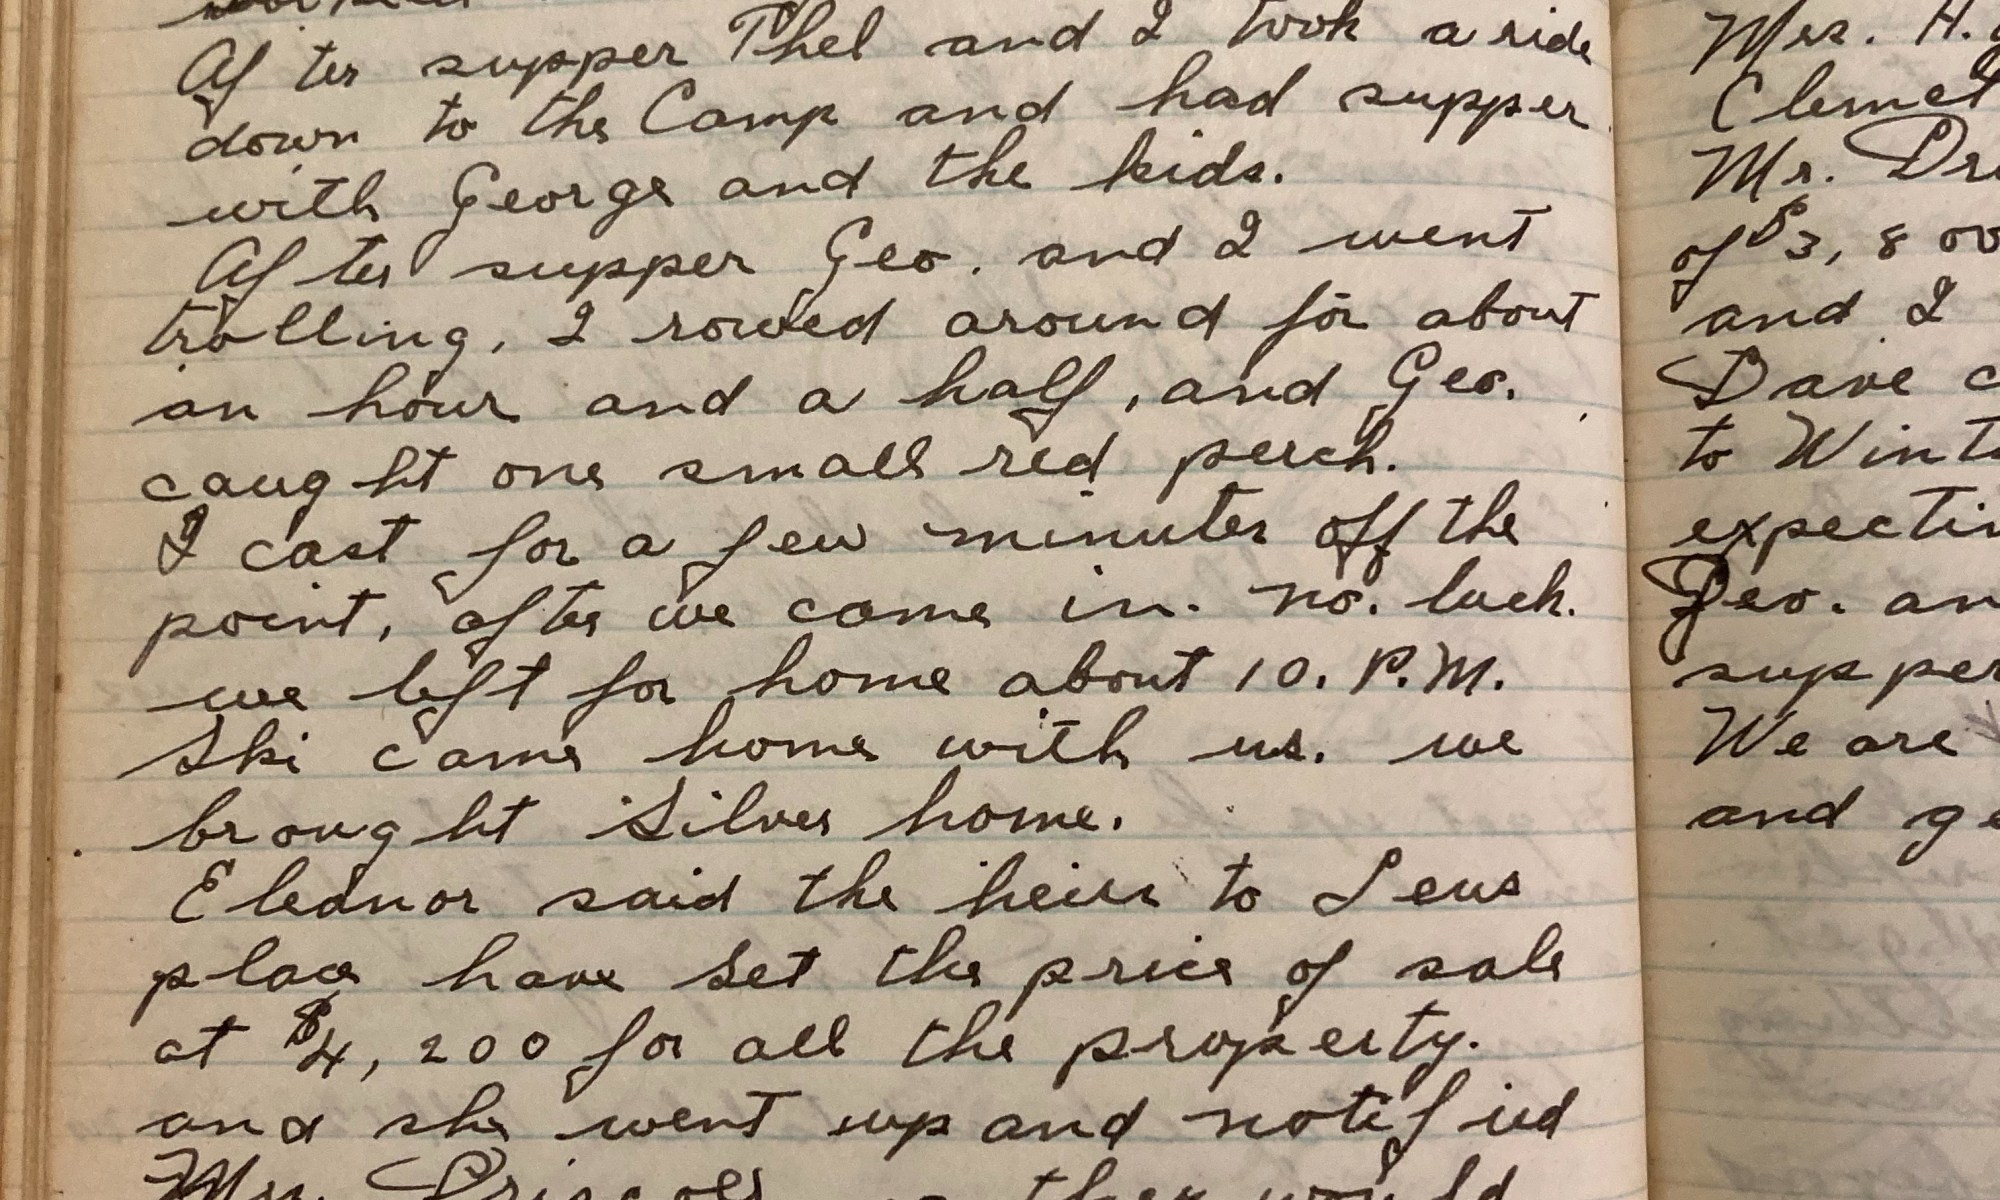 After supper Thel and I took a ride
down to the Camp and had supper
with George and the kids.
After supper Geo. and I went
trolling, I rowed around for about
an hour and a half, and Geo.
caught one small red perch.
I cast for a few minutes off the
point, after we came in. no. luck.
we left for home about 10. P.M.
Ski came home with us. we
brought Silver home.
Eleanor said the heirs to Leus
place have set the price of sale
at $4,200 for all the property.
and she went up and notified
they would
Mrs. H.
Mr.
of $3,800
and I
Dave
to
Geo.
supper
We are
and